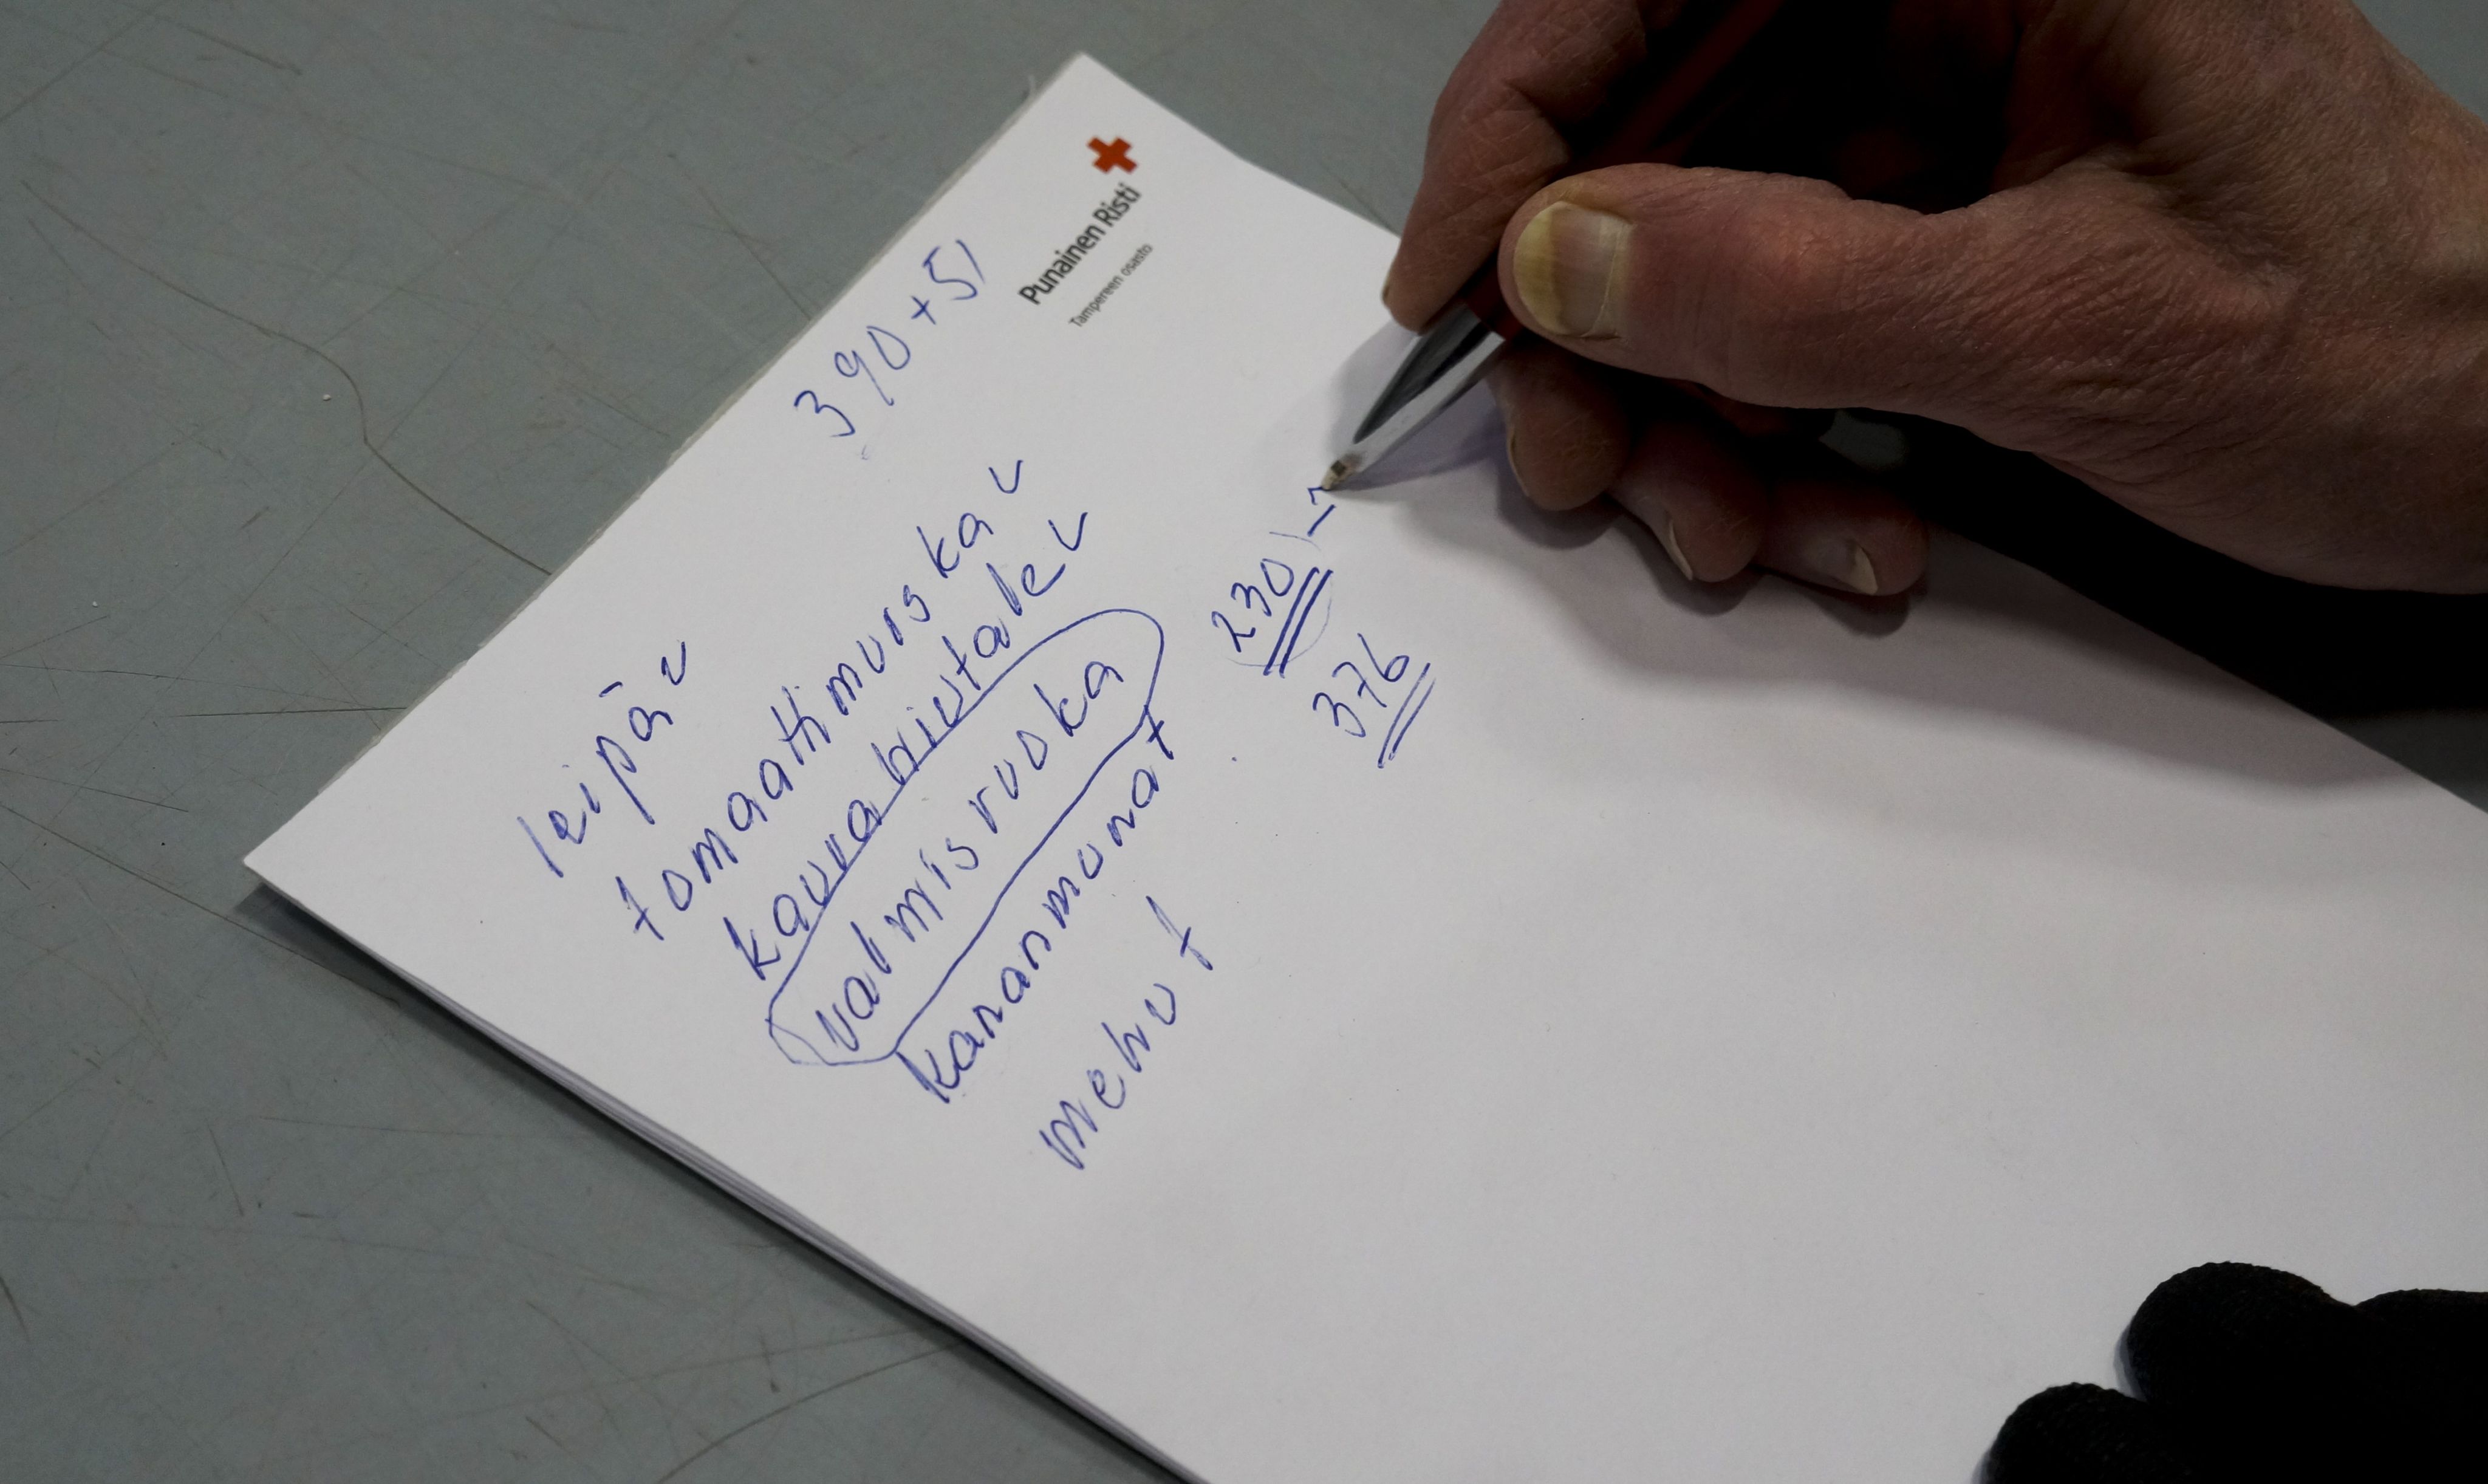 Punainen Risti
Tampereen osasto
390+51
leipä v
tomaattimurska v
kaurahiutale v
valmisruoka
kananmunat
mehut
230
376